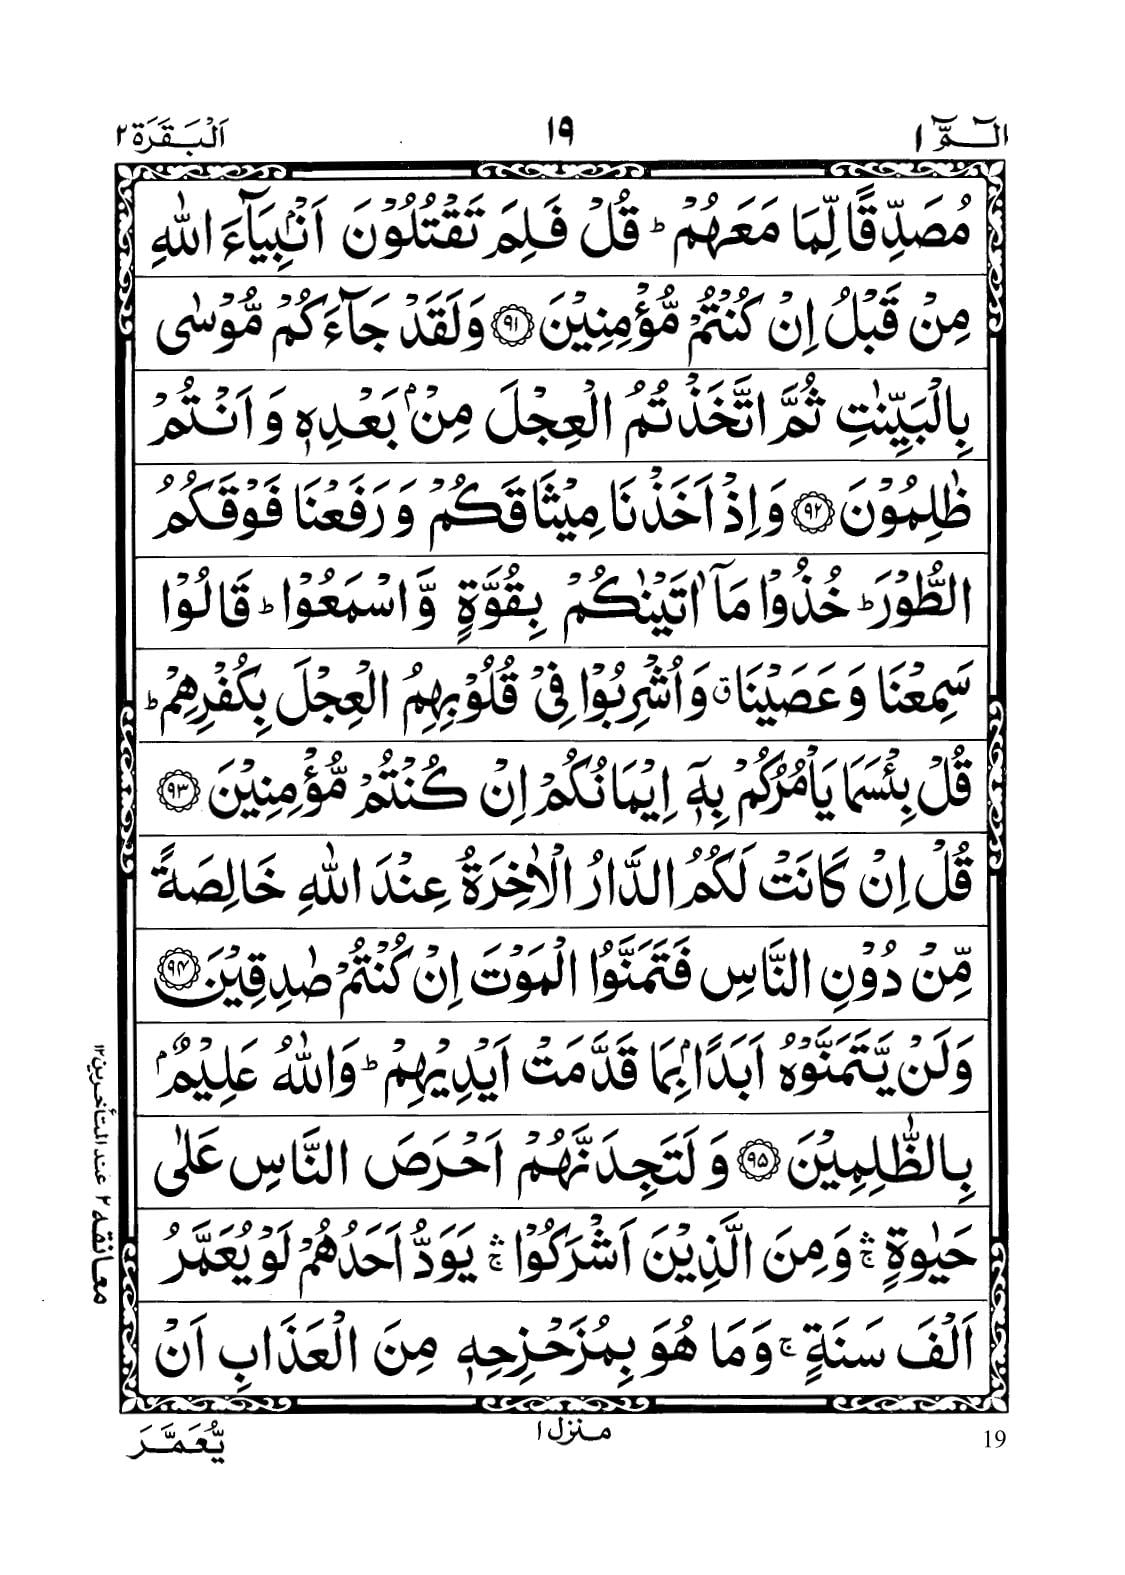 الٓـمّٓ ١
١٩
اَلْبَقَرَة ٢
مُصَدِّقًا لِّمَا مَعَهُمْ ؕ قُلْ فَلِمَ تَقْتُلُوْنَ اَنْۢبِيَآءَ اللّٰهِ
مِنْ قَبْلُ اِنْ كُنْتُمْ مُّؤْمِنِيْنَ ۝۹۱ وَلَقَدْ جَآءَكُمْ مُّوْسٰى
بِالْبَيِّنٰتِ ثُمَّ اتَّخَذْتُمُ الْعِجْلَ مِنْۢ بَعْدِهٖ وَاَنْتُمْ
ظٰلِمُوْنَ ۝۹۲ وَاِذْ اَخَذْنَا مِيْثَاقَكُمْ وَرَفَعْنَا فَوْقَكُمُ
الطُّوْرَ ؕ خُذُوْا مَاۤ اٰتَيْنٰكُمْ بِقُوَّةٍ وَّاسْمَعُوْا ؕ قَالُوْا
سَمِعْنَا وَعَصَيْنَا ۗ وَاُشْرِبُوْا فِيْ قُلُوْبِهِمُ الْعِجْلَ بِكُفْرِهِمْ ؕ
قُلْ بِئْسَمَا يَاْمُرُكُمْ بِهٖۤ اِيْمَانُكُمْ اِنْ كُنْتُمْ مُّؤْمِنِيْنَ ۝۹۳
قُلْ اِنْ كَانَتْ لَكُمُ الدَّارُ الْاٰخِرَةُ عِنْدَ اللّٰهِ خَالِصَةً
مِّنْ دُوْنِ النَّاسِ فَتَمَنَّوُا الْمَوْتَ اِنْ كُنْتُمْ صٰدِقِيْنَ ۝۹۴
وَلَنْ يَّتَمَنَّوْهُ اَبَدًۢا بِمَا قَدَّمَتْ اَيْدِيْهِمْ ؕ وَاللّٰهُ عَلِيْمٌۢ
بِالظّٰلِمِيْنَ ۝۹۵ وَلَتَجِدَنَّهُمْ اَحْرَصَ النَّاسِ عَلٰى
حَيٰوةٍ ۛۚ وَمِنَ الَّذِيْنَ اَشْرَكُوْا ۛۚ يَوَدُّ اَحَدُهُمْ لَوْ يُعَمَّرُ
اَلْفَ سَنَةٍ ۚ وَمَا هُوَ بِمُزَحْزِحِهٖ مِنَ الْعَذَابِ اَنْ
معانقه ٢ عند المتأخرين ١٢
منزل ١
يُّعَمَّرَ
19